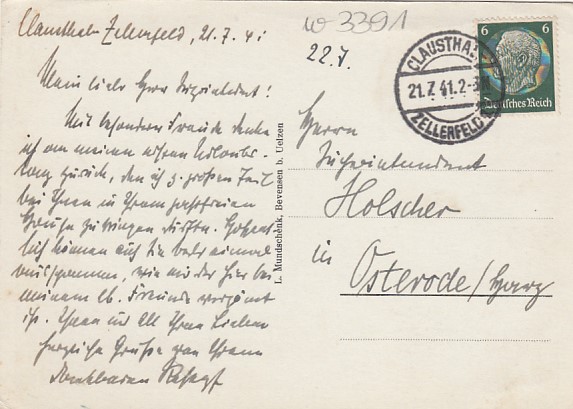 Clausthal-Zellerfeld, 21.7.41
Mein lieber Herr Superintendent!
Mit besonderer Freude denke
ich an meinen ersten Urlaubs-
tag zurück, den ich z. großen Teil
bei Ihnen in Ihrem gastfreien
Hause zubringen durfte. Hoffent-
lich können auch Sie bald einmal
ausspannen, wie mir der hier bei
meinem lb. Freunde vergönnt
ist. Ihnen und all Ihren Lieben
herzliche Grüße von Ihrem
dankbaren
w 3391
22.7.
CLAUSTHAL-
21.7.41.2-3
ZELLERFELD
6 6
Deutsches Reich
L. Mundschenk, Bevensen b. Uelzen
Herrn
Superintendent
Holscher
in
Osterode/Harz